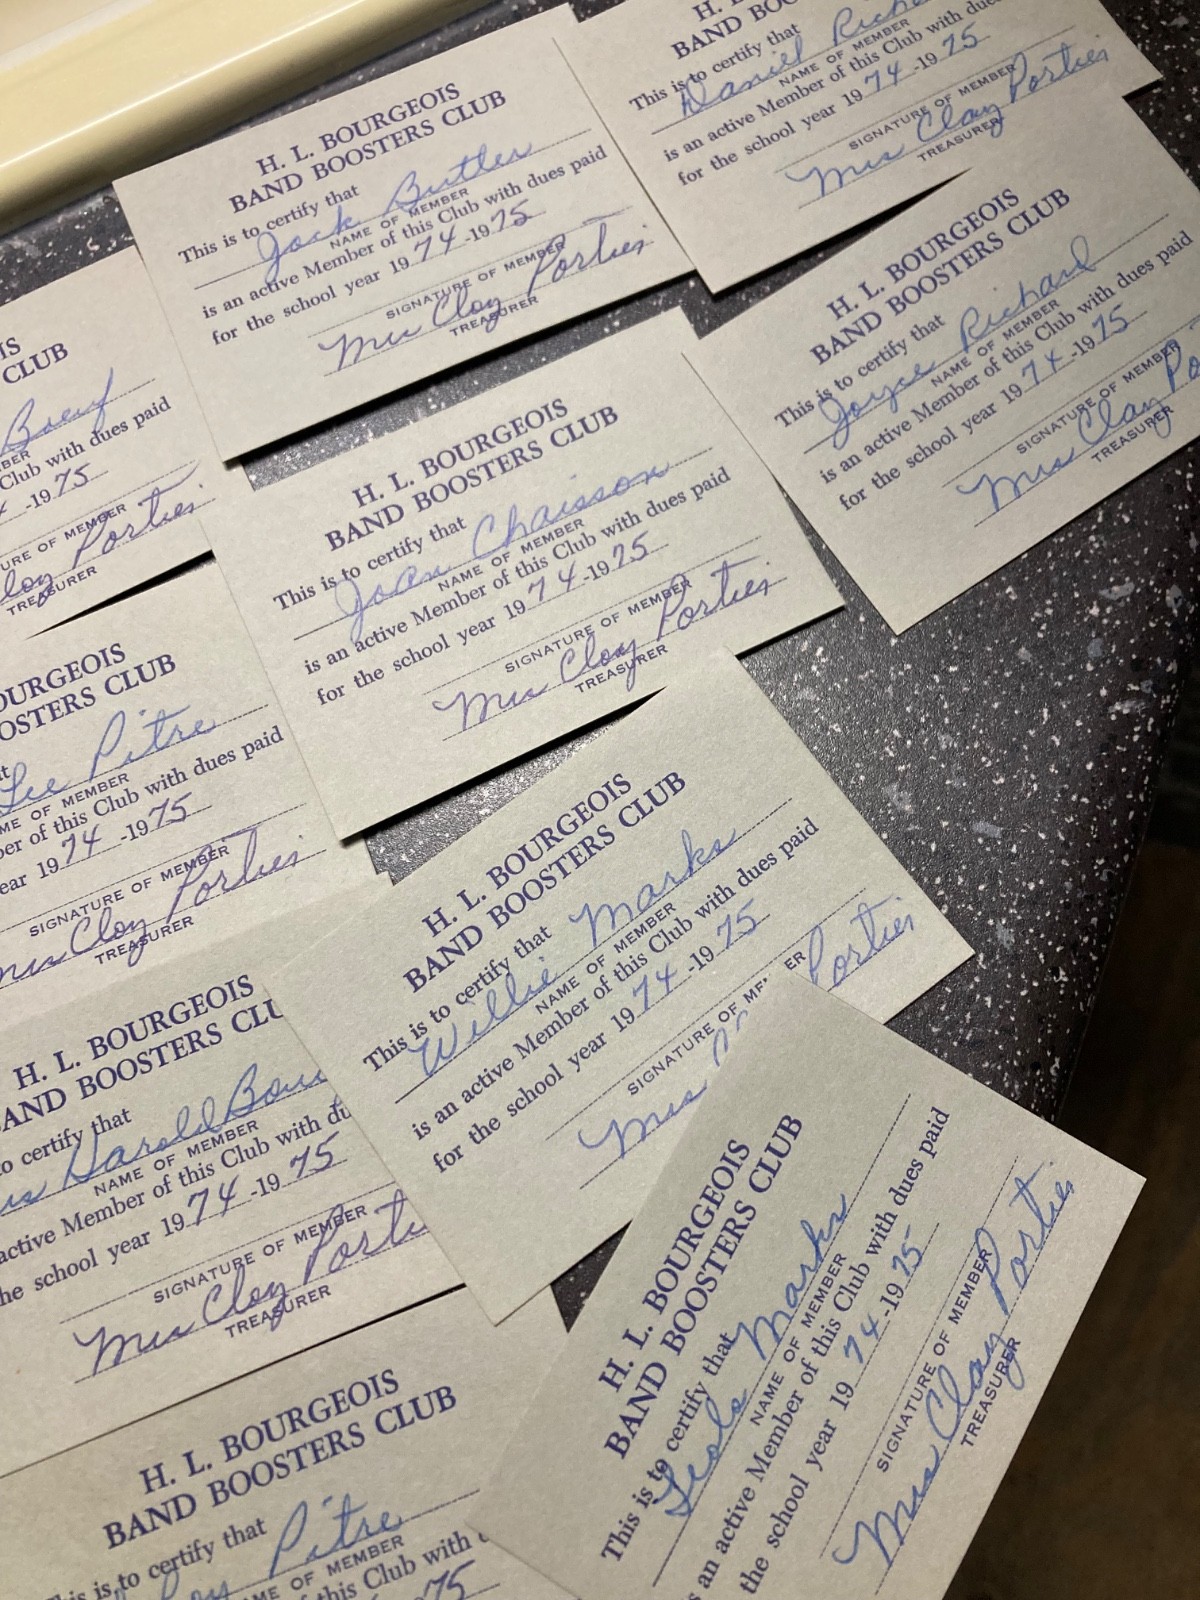 H. L. BOURGEOIS
BAND BOOSTERS CLUB
This is to certify that
Jack Butler
NAME OF MEMBER
is an active Member of this Club with dues paid
for the school year 1974-1975
SIGNATURE OF MEMBER
Mrs Cloy Portier
TREASURER
H. L.
BAND BOO
This is to certify that
Daniel Richa
NAME OF MEMBER
is an active Member of this Club with dues
for the school year 1974-1975
SIGNATURE OF MEMBER
Mrs Cloy Portier
TREASURER
H. L. BOURGEOIS
BAND BOOSTERS CLUB
This is to certify that
Joyce Richard
NAME OF MEMBER
is an active Member of this Club with dues paid
for the school year 1974-1975
SIGNATURE OF MEMBER
Mrs Clay Po
TREASURER
IS
CLUB
Boeuf
BER
Club with dues paid
4-1975
URE OF MEMBER
loy Portier
TREASURER
H. L. BOURGEOIS
BAND BOOSTERS CLUB
This is to certify that
Joan Chaisson
NAME OF MEMBER
is an active Member of this Club with dues paid
for the school year 1974-1975
SIGNATURE OF MEMBER
Mrs Cloy Portier
TREASURER
OURGEOIS
OSTERS CLUB
at
Lee Pitre
ME OF MEMBER
ber of this Club with dues paid
ear 1974-1975
SIGNATURE OF MEMBER
Mrs Cloy Portier
TREASURER
H. L. BOURGEOIS
BAND BOOSTERS CLUB
This is to certify that
Willie Marks
NAME OF MEMBER
is an active Member of this Club with dues paid
for the school year 1974-1975
SIGNATURE OF MEMBER
Mrs Portier
H. L. BOURGEOIS
AND BOOSTERS CLU
to certify that
rs Harold Bou
NAME OF MEMBER
active Member of this Club with du
he school year 1974-1975
SIGNATURE OF MEMBER
Mrs Cloy Porti
TREASURER
H. L. BOURGEOIS
BAND BOOSTERS CLUB
This is to certify that
Leola Marks
NAME OF MEMBER
s an active Member of this Club with dues paid
the school year 1974-1975
SIGNATURE OF MEMBER
Mrs Clay Portier
TREASURER
H. L. BOURGEOIS
BAND BOOSTERS CLUB
his is to certify that
oy Pitre
NAME OF MEMBER
ber of this Club with d
75